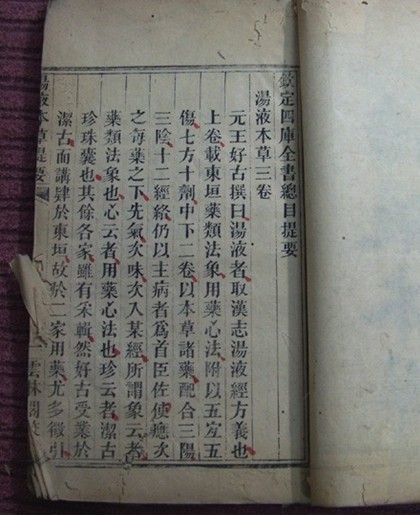 欽定四庫全書總目提要
湯液本草三卷
元王好古撰曰湯液者取漢志湯液經方義也
上卷載東垣藥類法象用藥心法附以五宜五
傷七方十劑中下二卷以本草諸藥配合三陽
三陰十二經絡仍以主病者為首臣佐使應次
之每藥之下先氣次味次入某經所謂象云者
藥類法象也心云者用藥心法也珍云者潔古
珍珠囊也其餘各家雖有采輯然好古受業於
潔古而講肄於東垣故於二家用藥尤多徵引
湯液本草提要